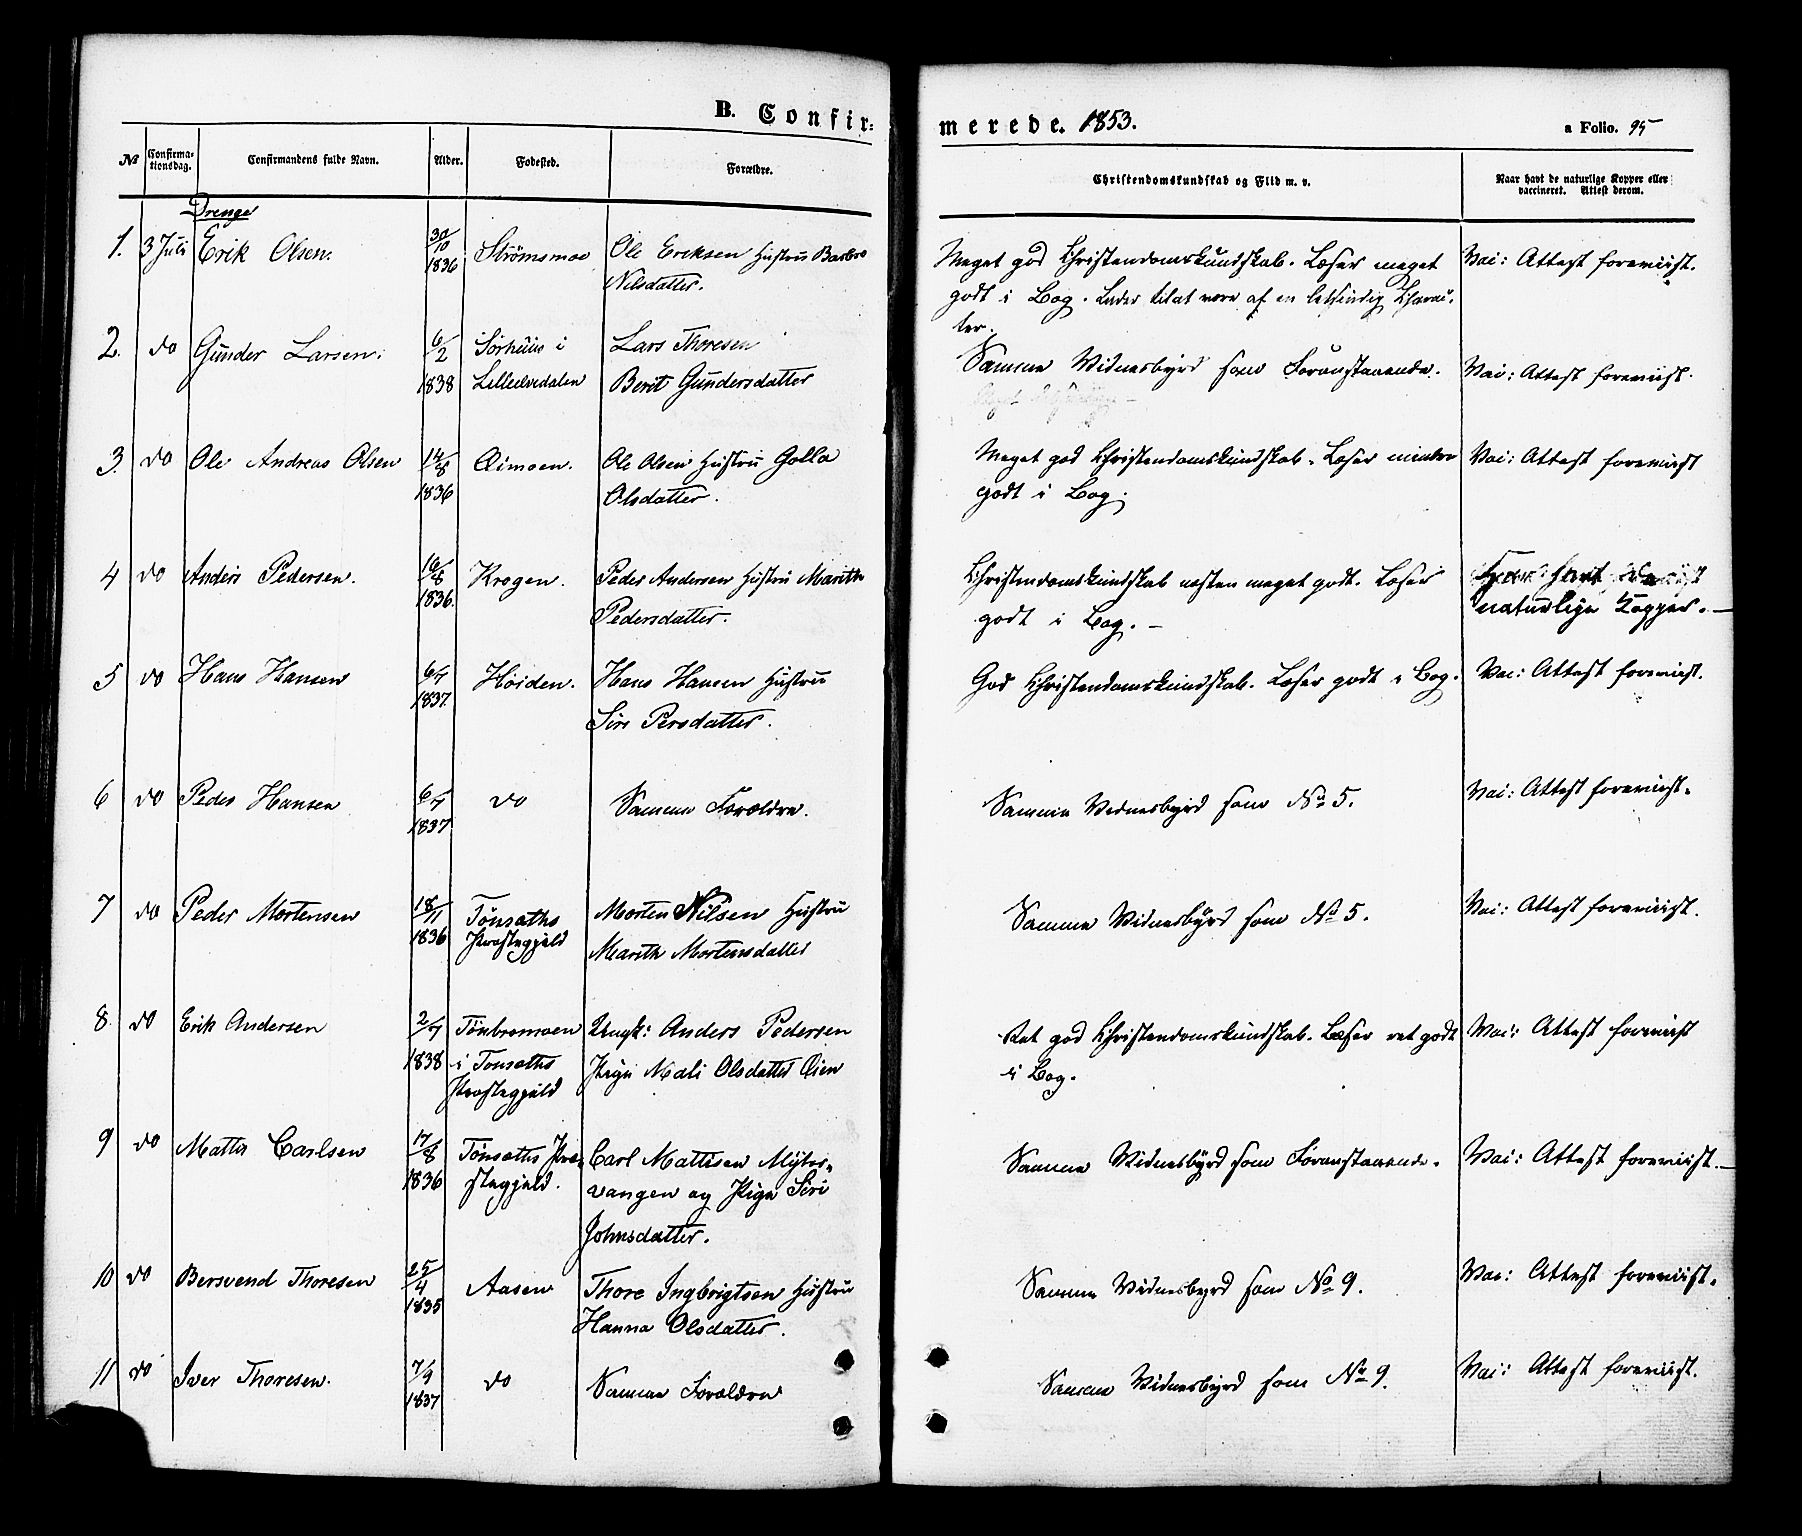 B. Confir-
merede. 1853.
a Folio. 95
No
Confirma-
tionsdag.
Confirmandens fulde Navn.
Alder.
Fødested.
Forældre.
Christendomskundskab og Flid m. v.
Naar havt de naturlige Kopper eller
vaccineret. Attest derom.
Drenge
1. 3 Juli Erik Olsen.
30/10
1836
Strömsmoe
Ole Eriksen Hustru Barbro
Nilsdatter.
Meget god Christendomskundskab. Læser meget
godt i Bog. Lader til at være af en letsindig Charac-
ter.
Vac: Attest foreviist.
2. do Gunder Larsen.
6/2
1838
Sörhuus i
Lilleelvedalen
Lars Thoresen
Berit Gundersdatter
Samme Vidnesbyrd som Foranstaaende.
Vac: Attest foreviist.
3. do Ole Andreas Olsen
14/8
1836
Øimoen.
Ole Olsen Hustru Golla
Olsdatter.
Meget god Christendomskundskab. Læser mindre
godt i Bog.
Vac: Attest foreviist
4 do Anders Pedersen.
16/8
1836.
Krogen.
Peder Andersen Hustru Marith
Pedersdatter.
Christendomskundskab næsten meget godt. Læser
godt i Bog. –
havt
naturlige Kopper. –
5 do Hans Hansen
6/7
1837.
Höiden.
Hans Hansen Hustru
Siri Persdatter.
God Christendomskundskab. Læser godt i Bog.
Vac: Attest foreviist.
6 do Peder Hansen
6/7
1837
do
Samme Forældre.
Samme Vidnesbyrd som No 5.
Vac: Attest foreviist.
7 do Peder Mortensen
18/11
1836
Tönsæths
Præstegjeld
Morten Nilsen Hustru
Marith Mortensdatter
Samme Vidnesbyrd som No 5.
Vac: Attest foreviist.
8. do Erik Andersen
2/7
1838
Tönbromoen
i Tonsæths
Præstegjeld
Ungk: Anders Pedersen
Pige Mali Olsdatter Öien
Ret god Christendomskundskab. Læser ret godt
i Bog.
Vac: Attest foreviist
9 do Mattis Carlsen
17/8
1836
Tönsæths Præ-
stegjeld.
Carl Mattisen
vangen og Pige Siri
Johnsdatter.
Samme Vidnesbyrd som Foranstaaende.
Vac: Attest foreviist. –
10 do Bersvend Thoresen
25/4
1835
Aasen
Thore Ingbrigtsen Hustru
Hanna Olsdatter.
Samme Vidnesbyrd som No 9.
Vac: Attest foreviist.
11 do Iver Thoresen.
7/9
1837
do
Samme Forældre
Samme Vidnesbyrd som No 9.
Vac: Attest foreviist.